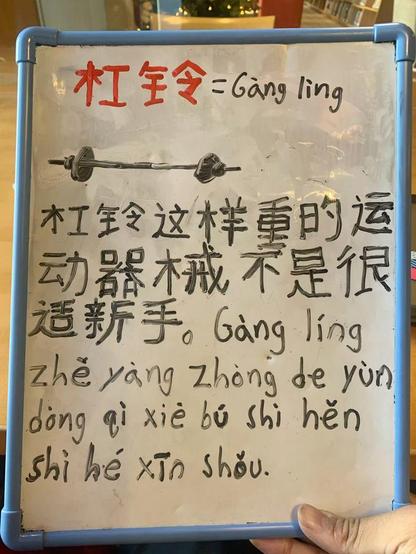 杠铃=Gàng ling
杠铃这样重的运
动器械不是很
适新手。Gàng líng
zhě yàng zhòng de yùn
dòng qì xiè bú shì hěn
shì hé xīn shǒu.